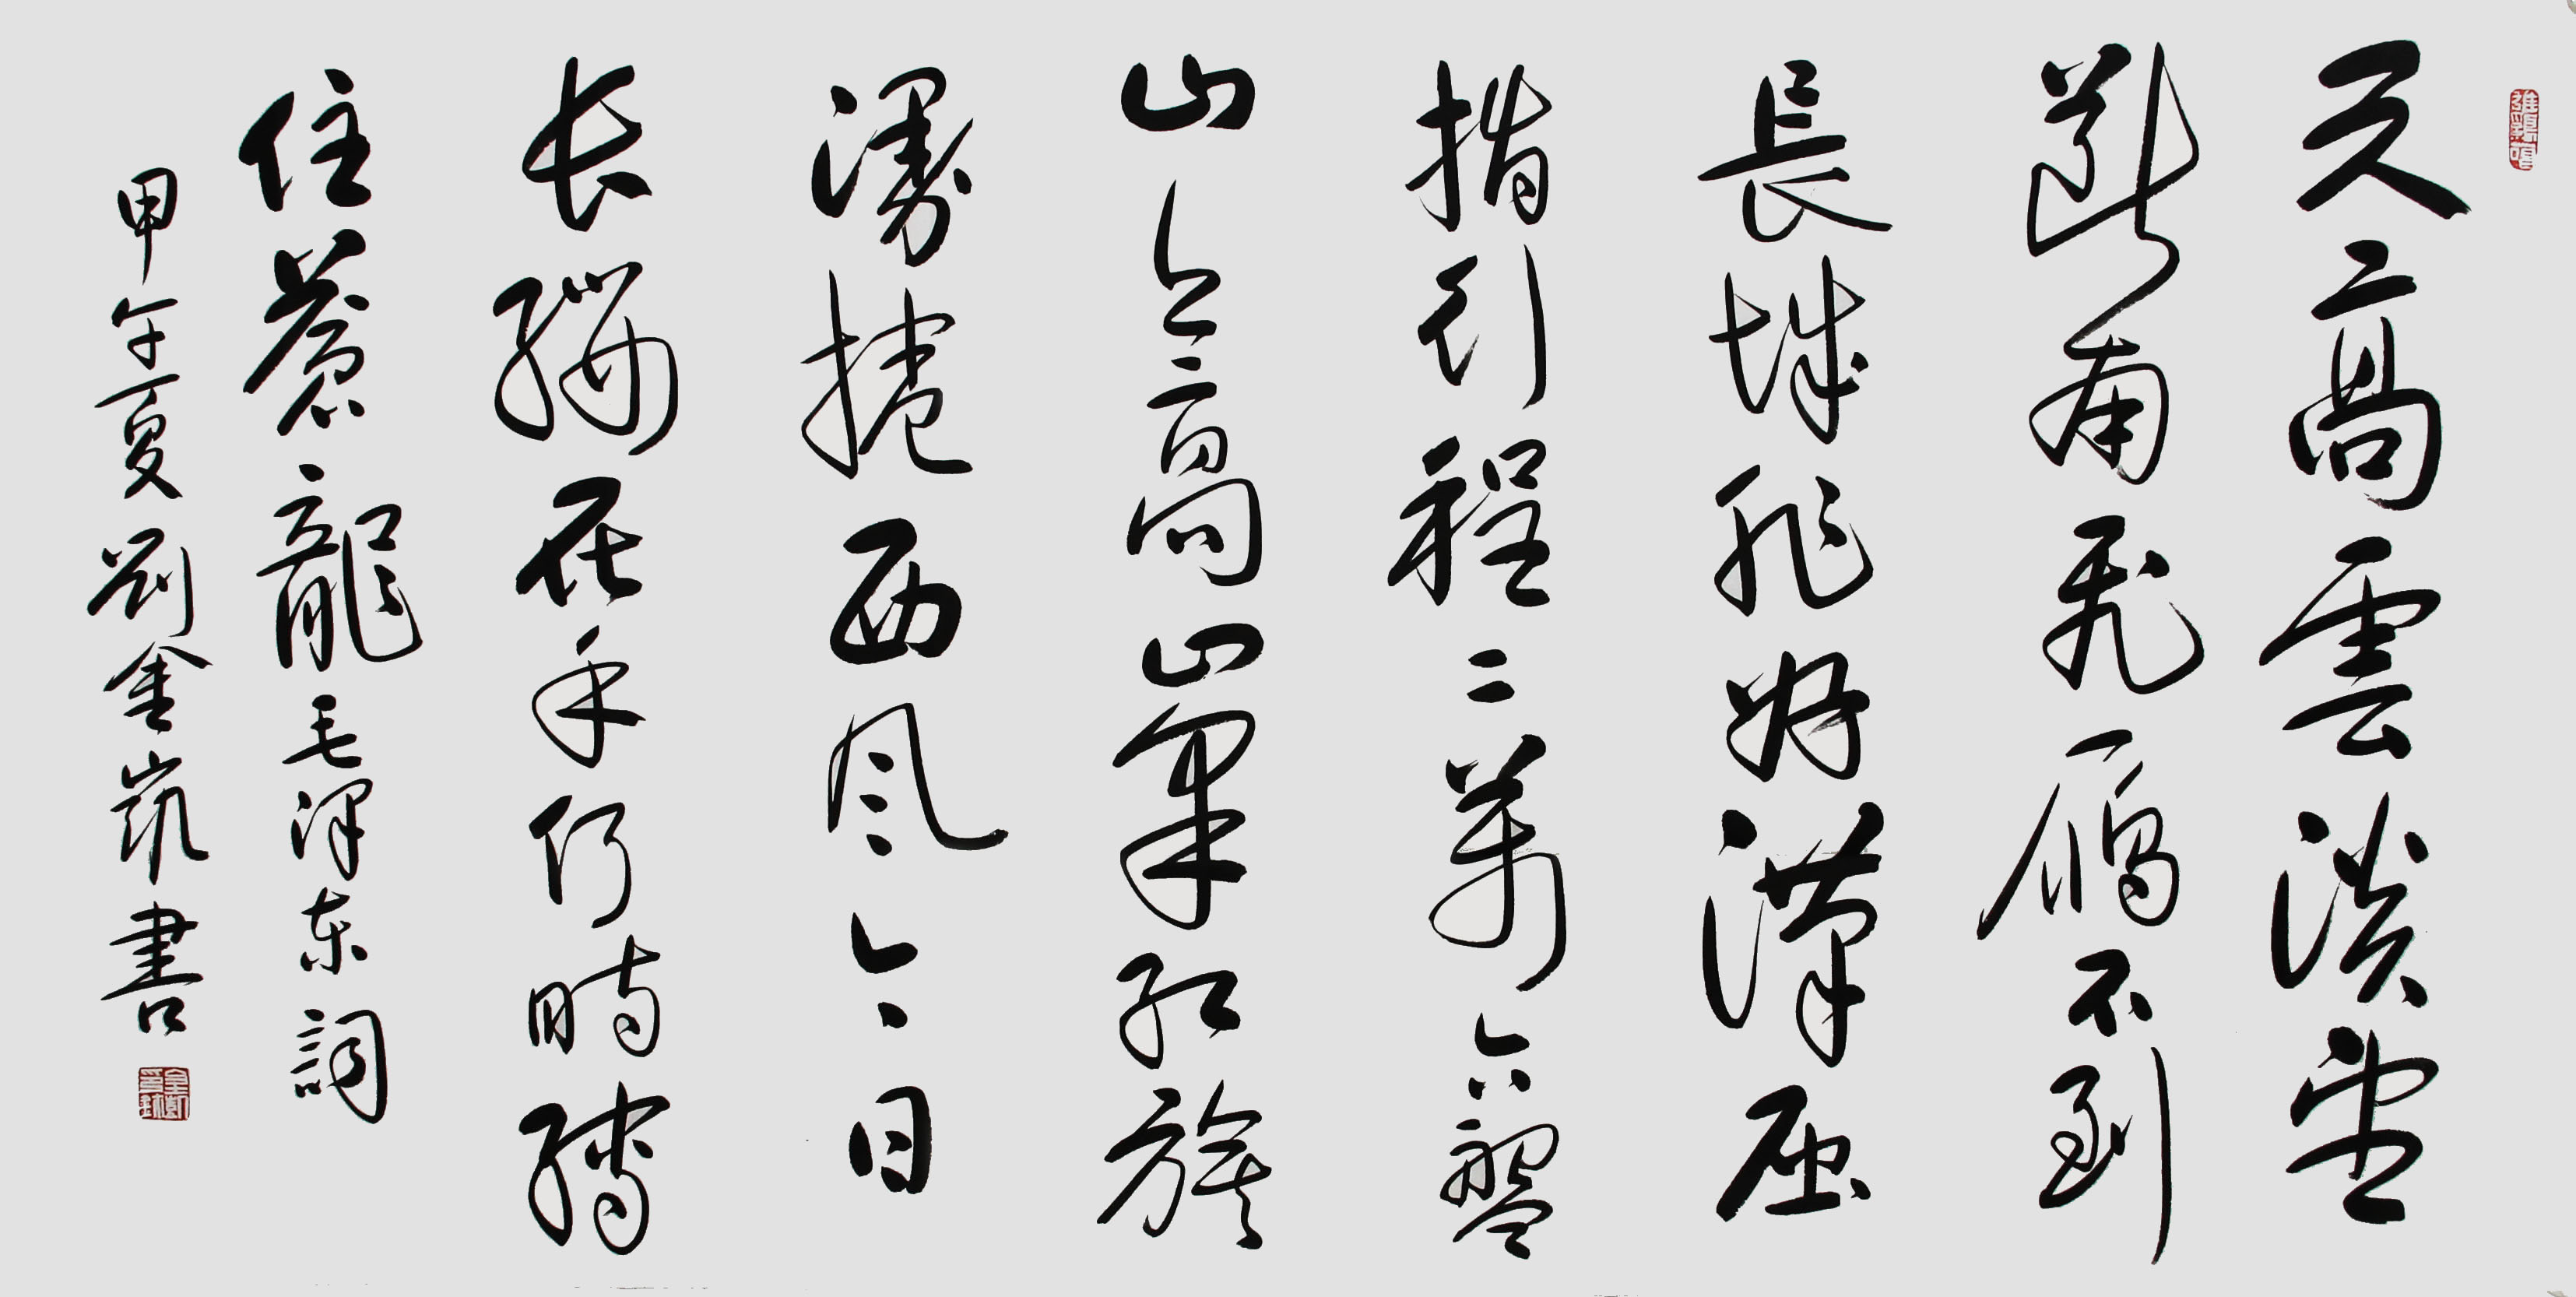 天高雲淡望
斷南飛雁不到
長城非好漢屈
指行程二萬六盤
山上高峯紅旗
漫捲西風今日
长纓在手何時縛
住蒼龍毛澤東詞
甲午夏劉金凱書